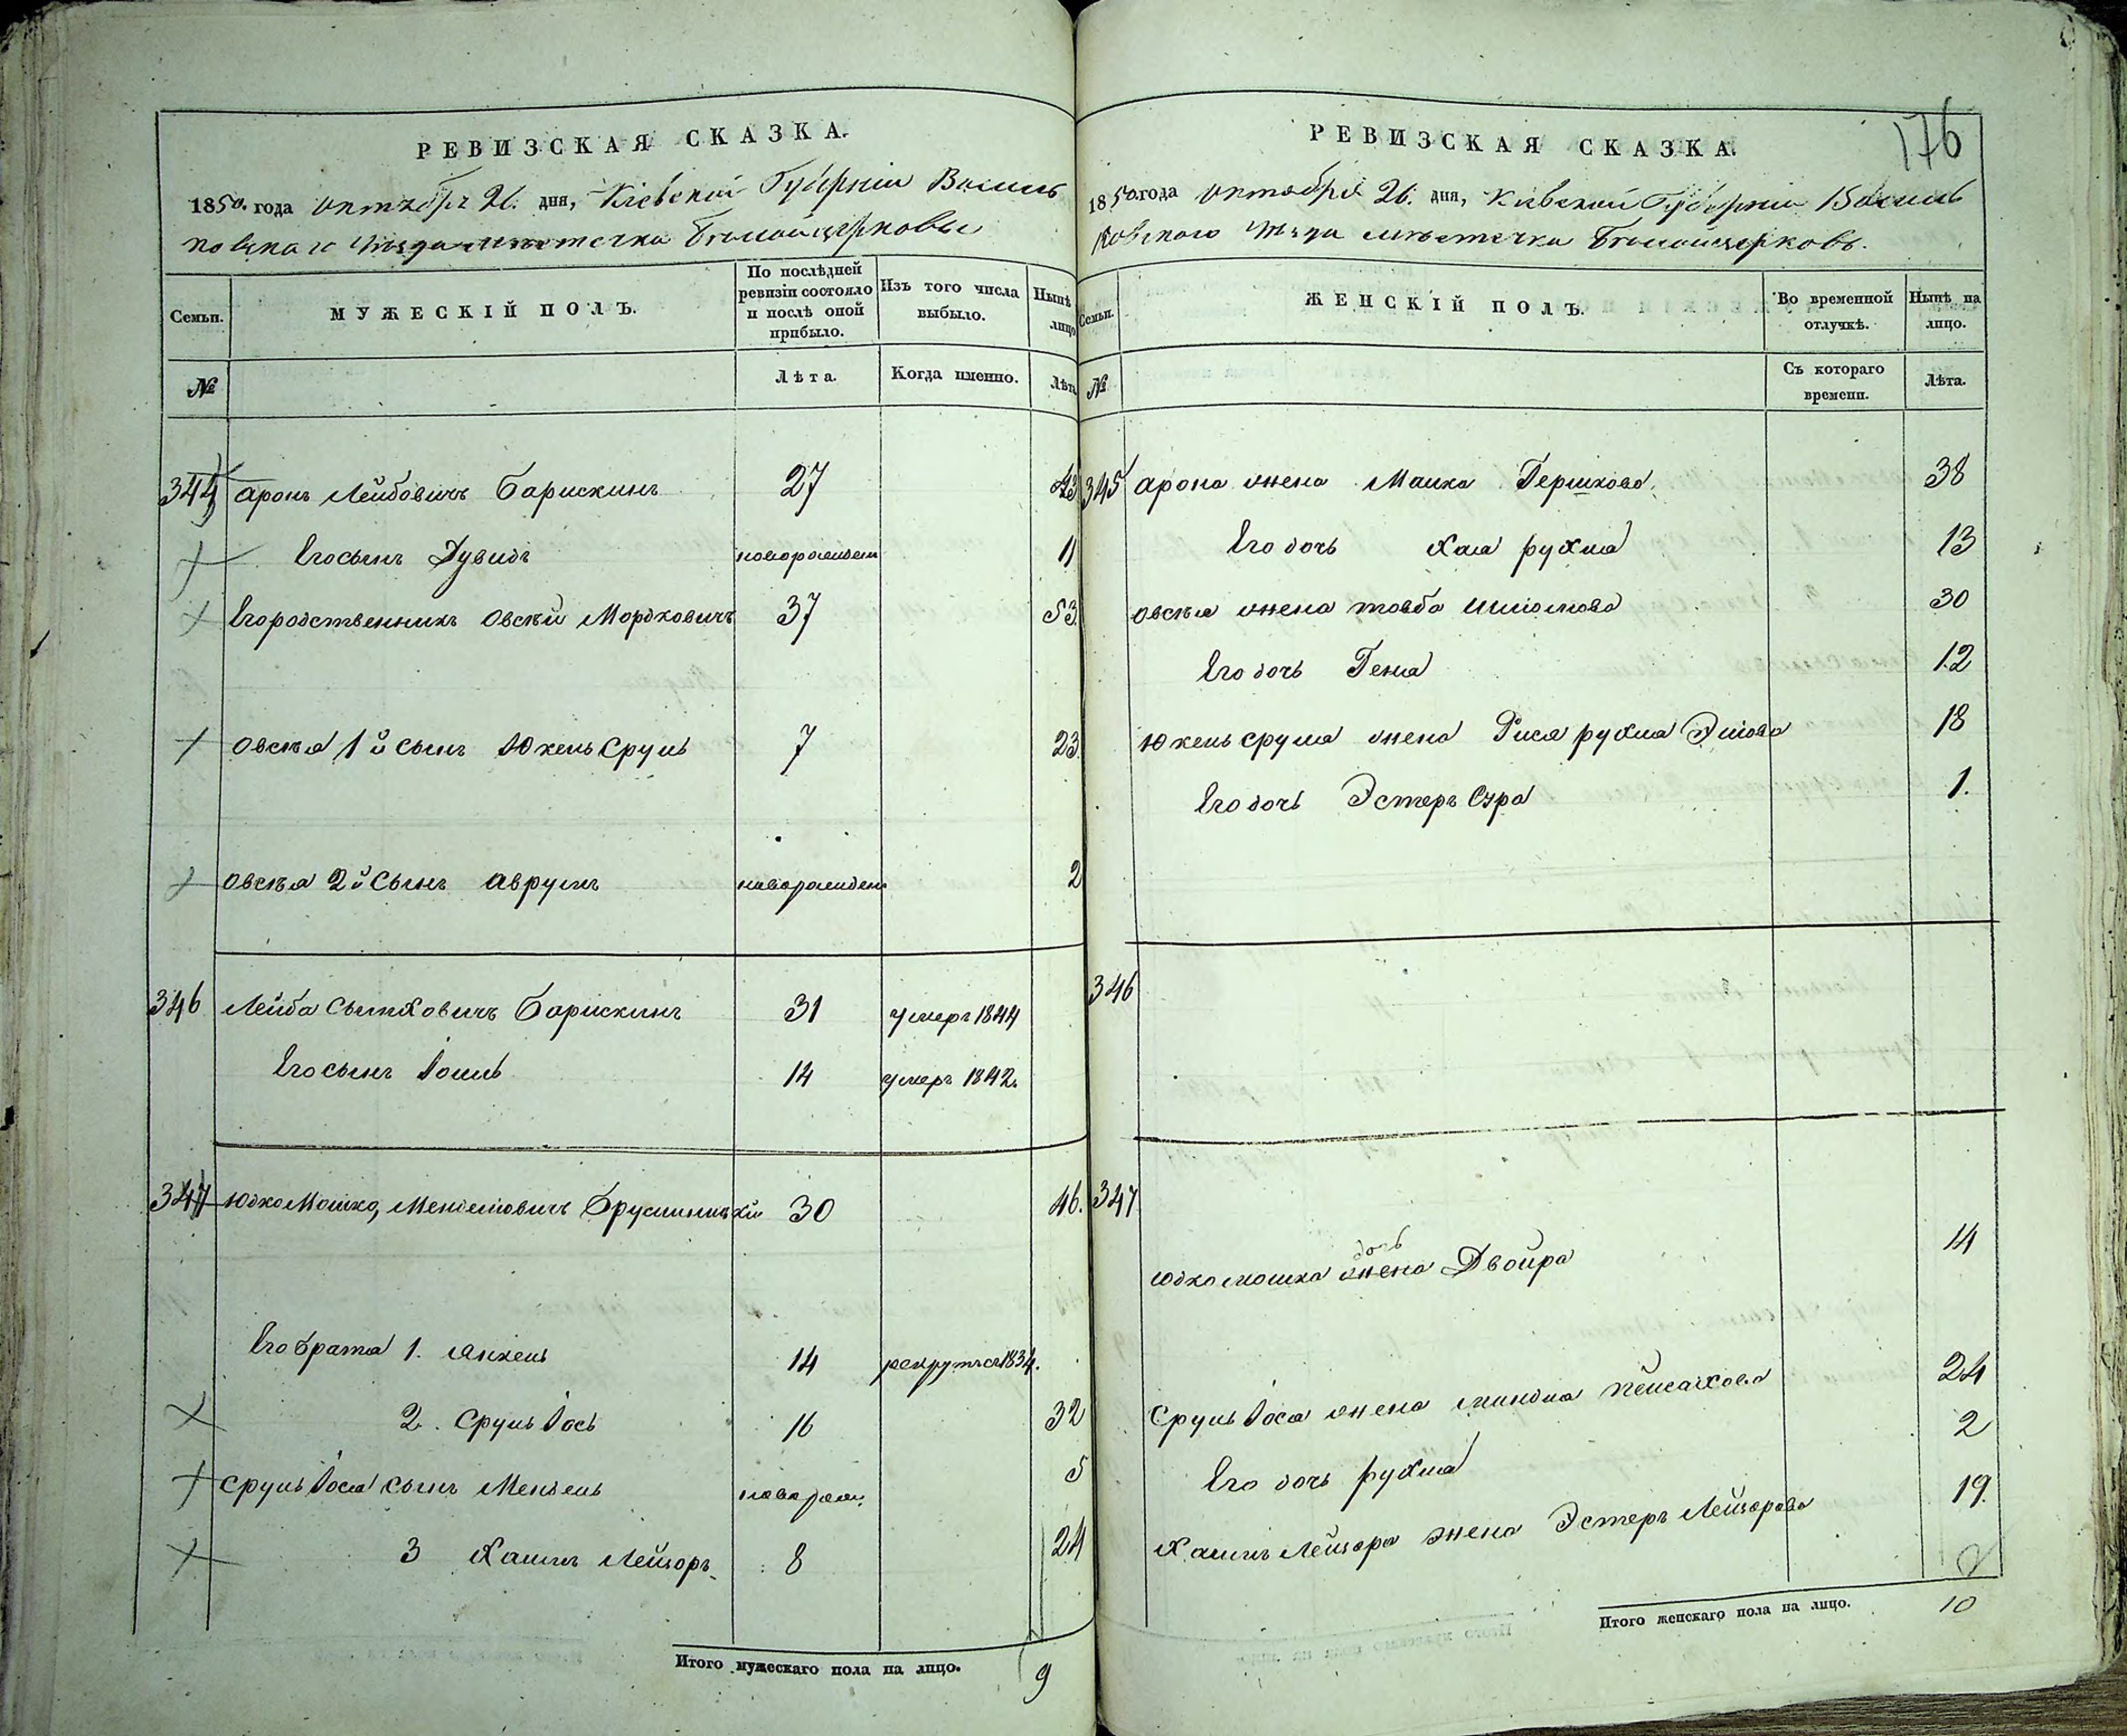 176
РЕВИЗСКАЯ СКАЗКА.
1850. года октября 26. дня, Кіевской Губерніи Василь
ковскаго уѣзда мѣстечка Бѣлойцерковы
Семьи. МУЖЕСКІЙ ПОЛЪ. По послѣдней ревизіи состояло и послѣ оной прибыло. Изъ того числа выбыло. Нынѣ на лицо
№ Лѣта. Когда именно. Лѣта
344 Аронъ Лейбовичъ Барискинъ 27 43
Его сынъ Дувидъ новорожден 11
Его родственникъ Овсѣй Мордковичъ 37 53.
Овсѣя 1й сынъ Юкель Сруль 7 23.
Овсѣя 2й сынъ Аврумъ новорожден 2
346 Лейба Сытховичъ Барискинъ 31 умеръ 1844
Его сынъ Іоиль 14 умеръ 1842.
347 Юдко Мошко, Менделовичъ Брусиловскій 30 46.
Его брата 1. Янкель 14 рекрутъ съ 1834.
2. Сруль Іось 16 32
Сруль Іося сынъ Мендель новорож. 5
3 Хаимъ Лейзоръ 8 24
Итого мужескаго пола на лицо. 9
РЕВИЗСКАЯ СКАЗКА.
1850. года октября 26. дня, Кіевской Губерніи Василь
ковского уѣзда мѣстечка Бѣлойцерковь.
Семьи. ЖЕНСКІЙ ПОЛЪ. Во временной отлучкѣ. Нынѣ на лицо.
№ Съ котораго времени. Лѣта.
345 Арона жена Малка Гершкова 38
Его дочь Хая рухля 13
Овсѣя жена товба Шліомова 30
Его дочь Геня 12
Юкель сруля жена Рися рухля Эліова 18
Его дочь Эстеръ Сура 1.
346
347
дочь
Юдко мошка жена Двойра 14
Сруль Іося жена миндля Пейсахова 24
Его дочь рухля 2
Хаимъ Лейзора жена Эстеръ Лейзорова 19.
Итого женскаго пола на лицо. 10